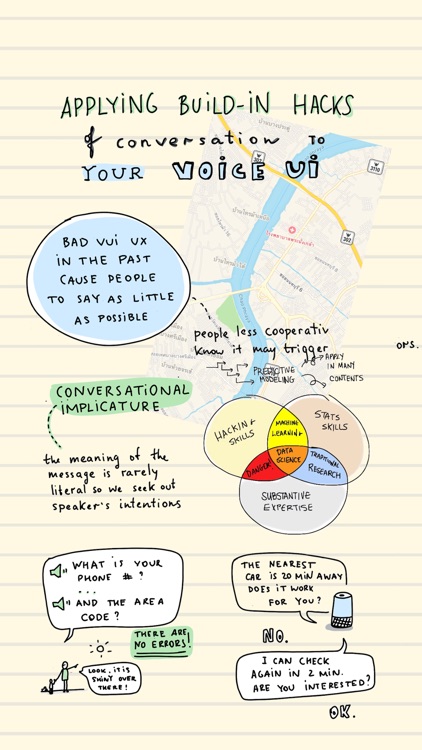 APPLYING BUILD-IN HACKS
of conversation TO
YOUR VOICE Ui
3110
302
BAD VUI UX
IN THE PAST
CAUSE PEOPLE
TO SAY AS LITTLE
AS POSSIBLE
people less cooperativ
know it may trigger
PREDICTIVE
MODELING
APPLY
IN MANY
CONTENTS
CONVERSATIONAL
IMPLICATURE
the meaning of the
message is rarely
literal so we seek out
speaker's intentions
HACKING
SKILLS
MACHINE
LEARNING
STATS
SKILLS
DATA
SCIENCE
DANGER
TRADITIONAL
RESEARCH
SUBSTANTIVE
EXPERTISE
WHAT IS YOUR
PHONE #?
...
AND THE AREA
CODE?
THERE ARE
NO ERRORS!
LOOK, IT IS
SHINY OVER
THERE!
THE NEAREST
CAR IS 20 MIN AWAY
DOES IT WORK
FOR YOU?
NO.
I CAN CHECK
AGAIN IN 2 MIN.
ARE YOU INTERESTED?
OK.